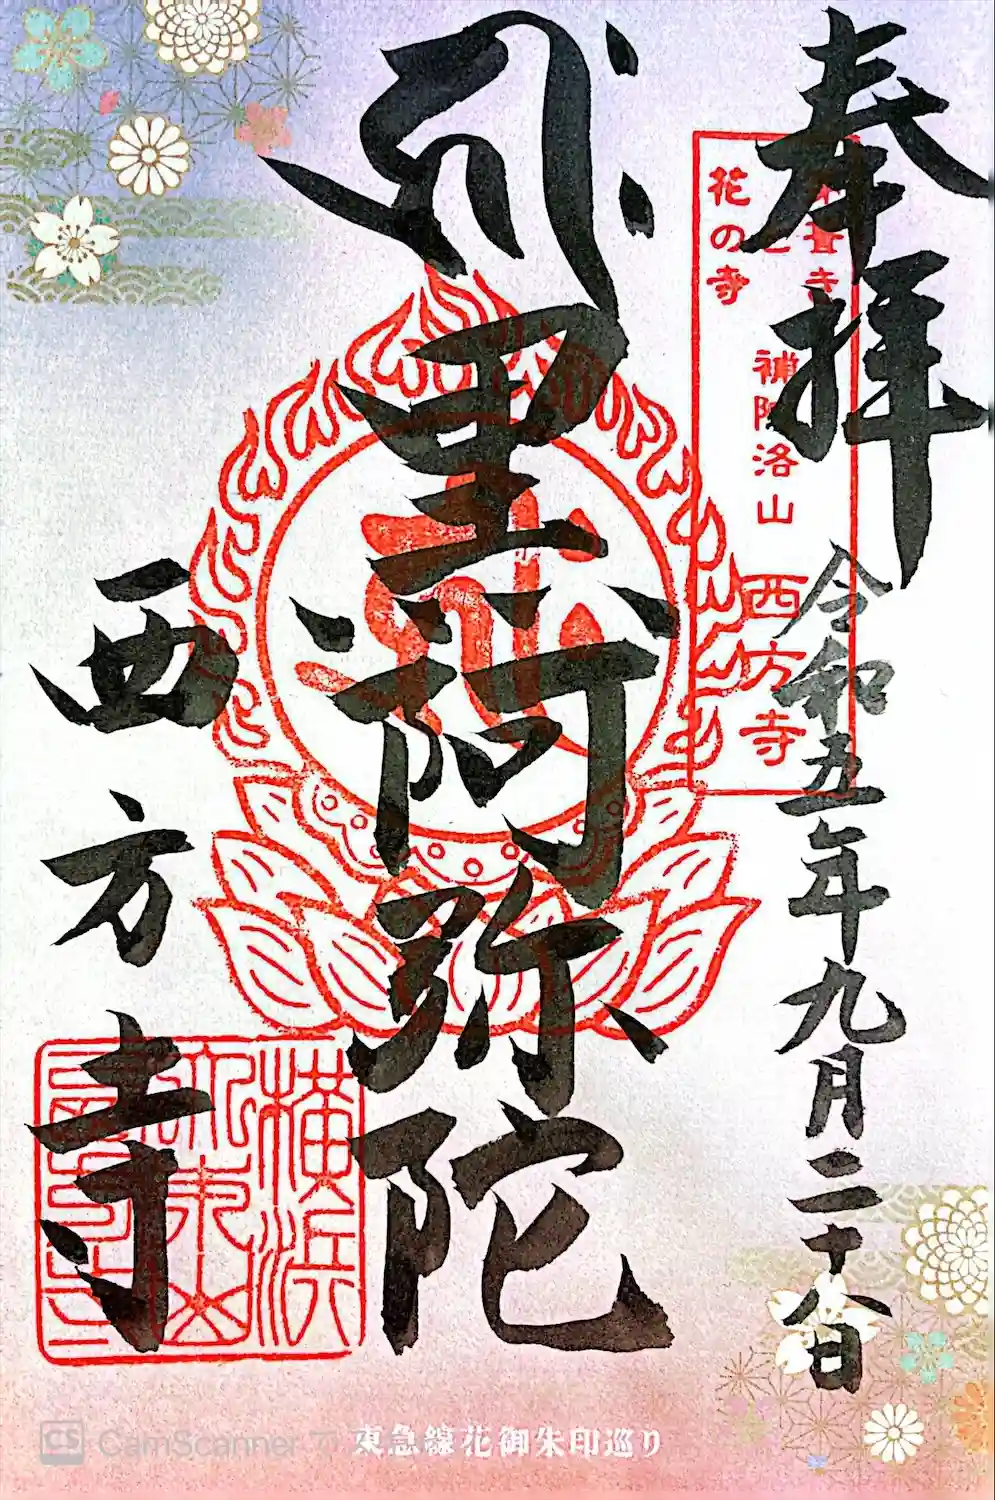 奉拝
令和五年九月二十八日
花の寺
補陀洛山
西方寺
阿弥陀
西方寺
横浜
東急線花御朱印巡り
CS CamScanner で